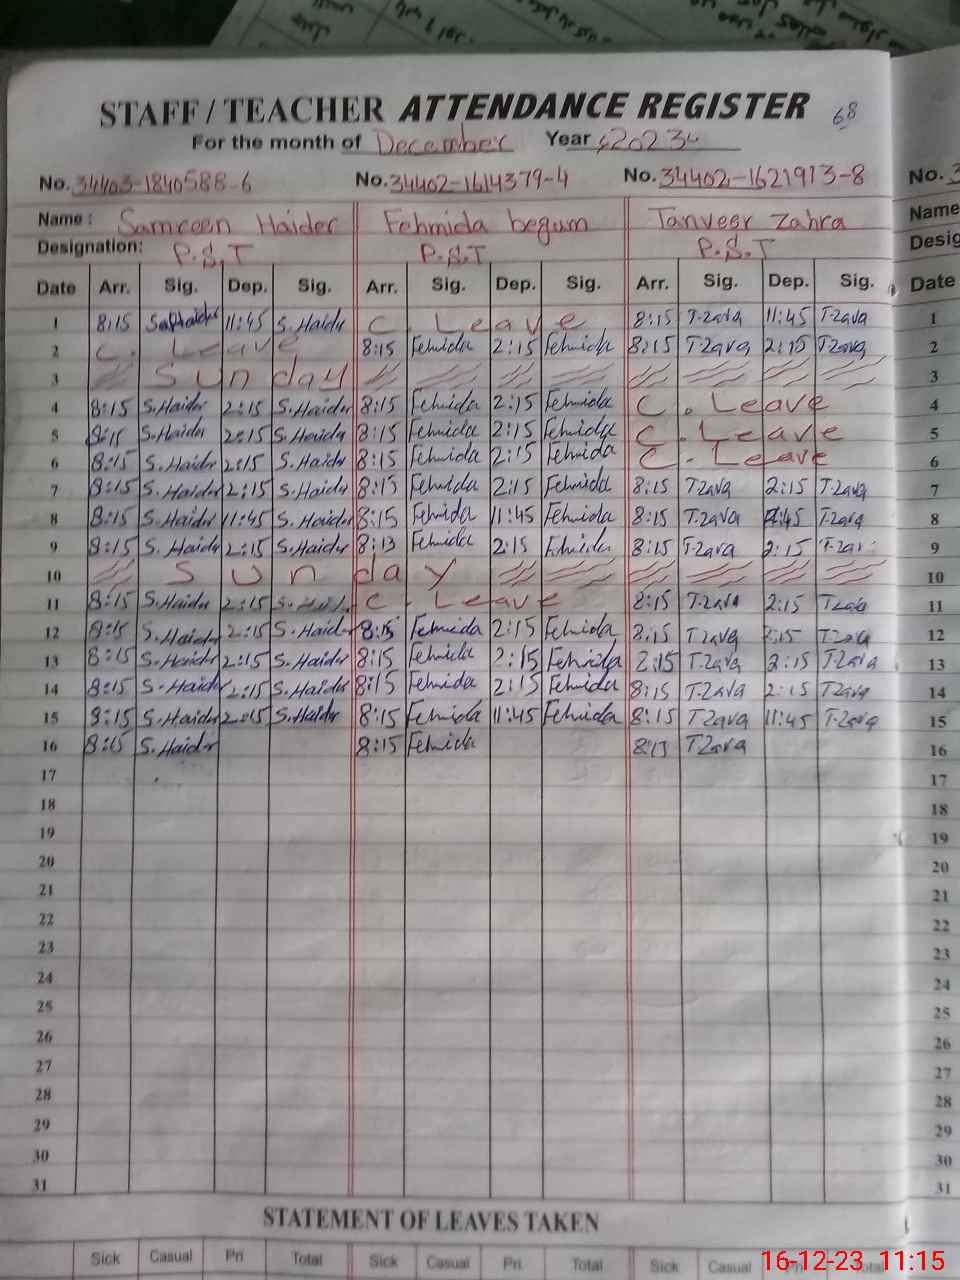 STAFF / TEACHER ATTENDANCE REGISTER 68
For the month of December Year 2023
No. 34403-1840588-6 No. 34402-1614379-4 No. 34402-1621913-8 No. 3
Name : Samreen Haider Fehmida begum Tanveer Zahra Name
Designation: P.S.T P.S.T P.S.T Desig
Date Arr. Sig. Dep. Sig. Arr. Sig. Dep. Sig. Arr. Sig. Dep. Sig. Date
1 8:15 S.Haider 11:45 S.Haider C. Leave 8:15 T.Zava 11:45 T.Zava 1
2 C. Leave 8:15 Fehmida 2:15 Fehmida 8:15 T.Zava 2:15 T.Zava 2
3 Sunday 3
4 8:15 S.Haider 2:15 S.Haider 8:15 Fehmida 2:15 Fehmida C. Leave 4
5 8:15 S.Haider 2:15 S.Haider 8:15 Fehmida 2:15 Fehmida C. Leave 5
6 8:15 S.Haider 2:15 S.Haider 8:15 Fehmida 2:15 Fehmida C. Leave 6
7 8:15 S.Haider 2:15 S.Haider 8:15 Fehmida 2:15 Fehmida 8:15 T.Zava 2:15 T.Zava 7
8 8:15 S.Haider 11:45 S.Haider 8:15 Fehmida 11:45 Fehmida 8:15 T.Zava 11:45 T.Zava 8
9 8:15 S.Haider 2:15 S.Haider 8:13 Fehmida 2:15 Fehmida 8:15 T.Zava 2:15 9
10 Sunday 10
11 8:15 S.Haider 2:15 C. Leave 8:15 T.Zava 2:15 T.Zava 11
12 8:15 S.Haider 2:15 S.Haider 8:15 Fehmida 2:15 Fehmida 8:15 T.Zava 2:15 T.Zava 12
13 8:15 S.Haider 2:15 S.Haider 8:15 Fehmida 2:15 Fehmida 2:15 T.Zava 2:15 T.Zava 13
14 8:15 S.Haider 2:15 S.Haider 8:15 Fehmida 2:15 Fehmida 8:15 T.Zava 2:15 T.Zava 14
15 8:15 S.Haider 2:15 S.Haider 8:15 Fehmida 11:45 Fehmida 8:15 T.Zava 11:45 T.Zava 15
16 8:15 S.Haider 8:15 Fehmida 8:15 T.Zava 16
17 17
18 18
19 19
20 20
21 21
22 22
23 23
24 24
25 25
26 26
27 27
28 28
29 29
30 30
31 31
STATEMENT OF LEAVES TAKEN
Sick Casual Pri Total Sick Casual Pri Total Sick Casual Pri Total
16-12-23 11:15